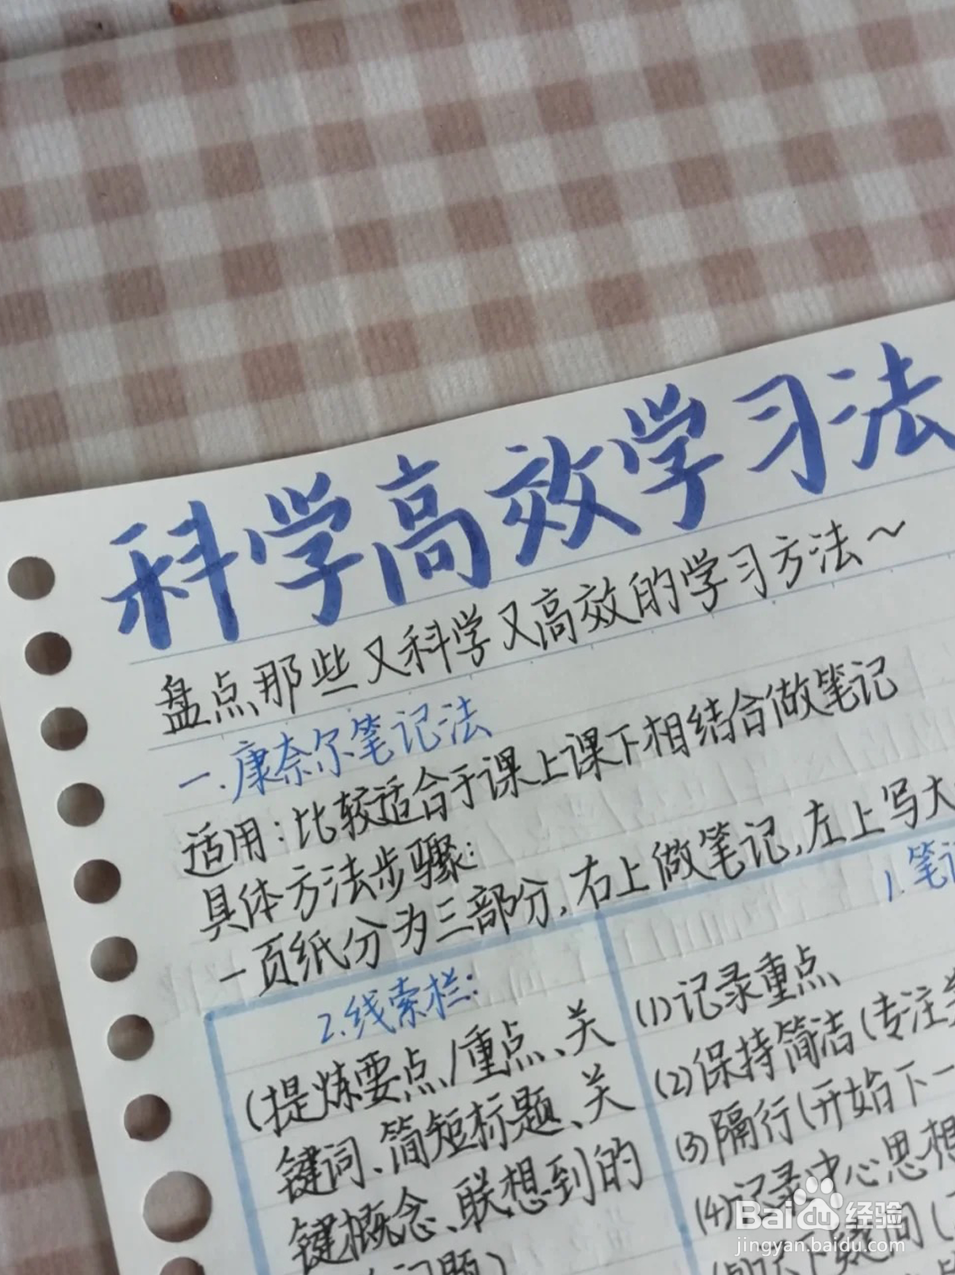 科学高效学习法
盘点那些又科学又高效的学习方法～
一.康奈尔笔记法
适用:比较适合于课上课下相结合做笔记
具体方法步骤:
一页纸分为三部分,右上做笔记,左上写大
2.线索栏:
(提炼要点/重点、关
键词、简短标题、关
键概念、联想到的
问题)
1.笔记
(1)记录重点
(2)保持简洁(专注
(3)隔行(开始下一
(4)记录中心思想
Baidu经验
jingyan.baidu.com